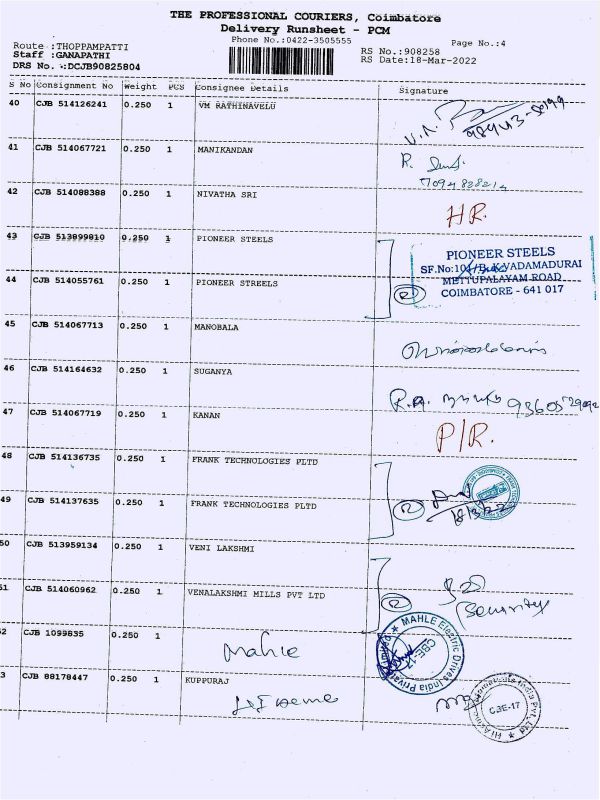 THE PROFESSIONAL COURIERS, Coimbatore
Delivery Runsheet - PCM
Phone No.:0422-3505555
Page No.:4
Route :THOPPAMPATTI
Staff :GANAPATHI
DRS No. :DCJB90825804
RS No.:908258
RS Date:18-Mar-2022
S No Consignment No Weight PCS Consignee Details Signature
40 CJB 514126241 0.250 1 VM RATHINAVELU
41 CJB 514067721 0.250 1 MANIKANDAN R.
42 CJB 514088388 0.250 1 NIVATHA SRI HR.
43 CJB 513899810 0.250 1 PIONEER STEELS
PIONEER STEELS
VADAMADURAI
METTUPALAYAM ROAD
COIMBATORE - 641 017
44 CJB 514055761 0.250 1 PIONEER STREELS R
45 CJB 514067713 0.250 1 MANOBALA
46 CJB 514164632 0.250 1 SUGANYA
47 CJB 514067719 0.250 1 KANAN P/R.
48 CJB 514136735 0.250 1 FRANK TECHNOLOGIES PLTD
49 CJB 514137635 0.250 1 FRANK TECHNOLOGIES PLTD R 18/3/22
50 CJB 513959134 0.250 1 VENI LAKSHMI
51 CJB 514060962 0.250 1 VENALAKSHMI MILLS PVT LTD R Security
52 CJB 1099835 0.250 1 Mahle
MAHLE Electric Drives India Private Limited
CBE-17
53 CJB 88178447 0.250 1 KUPPURAJ
India Pvt. Ltd
CBE-17